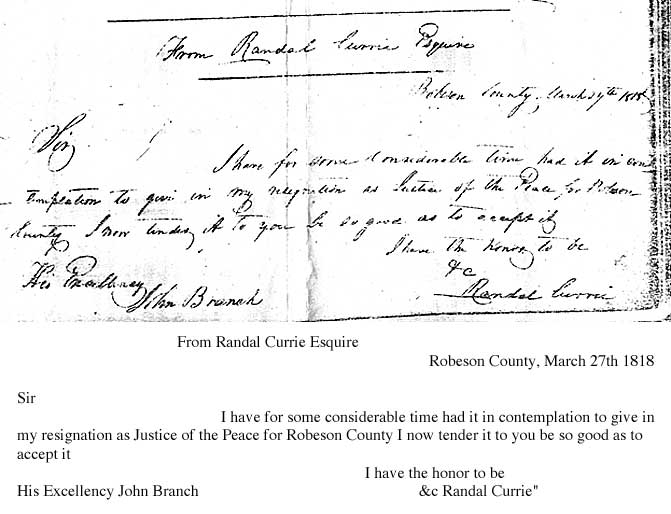 From Randal Currie Esquire
Robeson County, March 27th 1818
Sir
I have for some Considerable time had it in con
templation to give in my resignation as Justice of the Peace for Robeson
County I now tender it to you be so good as to accept it
I have the honor to be
&c
His Excellency
John Branch
Randal Currie
From Randal Currie Esquire
Robeson County, March 27th 1818
Sir
I have for some considerable time had it in contemplation to give in
my resignation as Justice of the Peace for Robeson County I now tender it to you be so good as to
accept it
I have the honor to be
His Excellency John Branch &c Randal Currie"